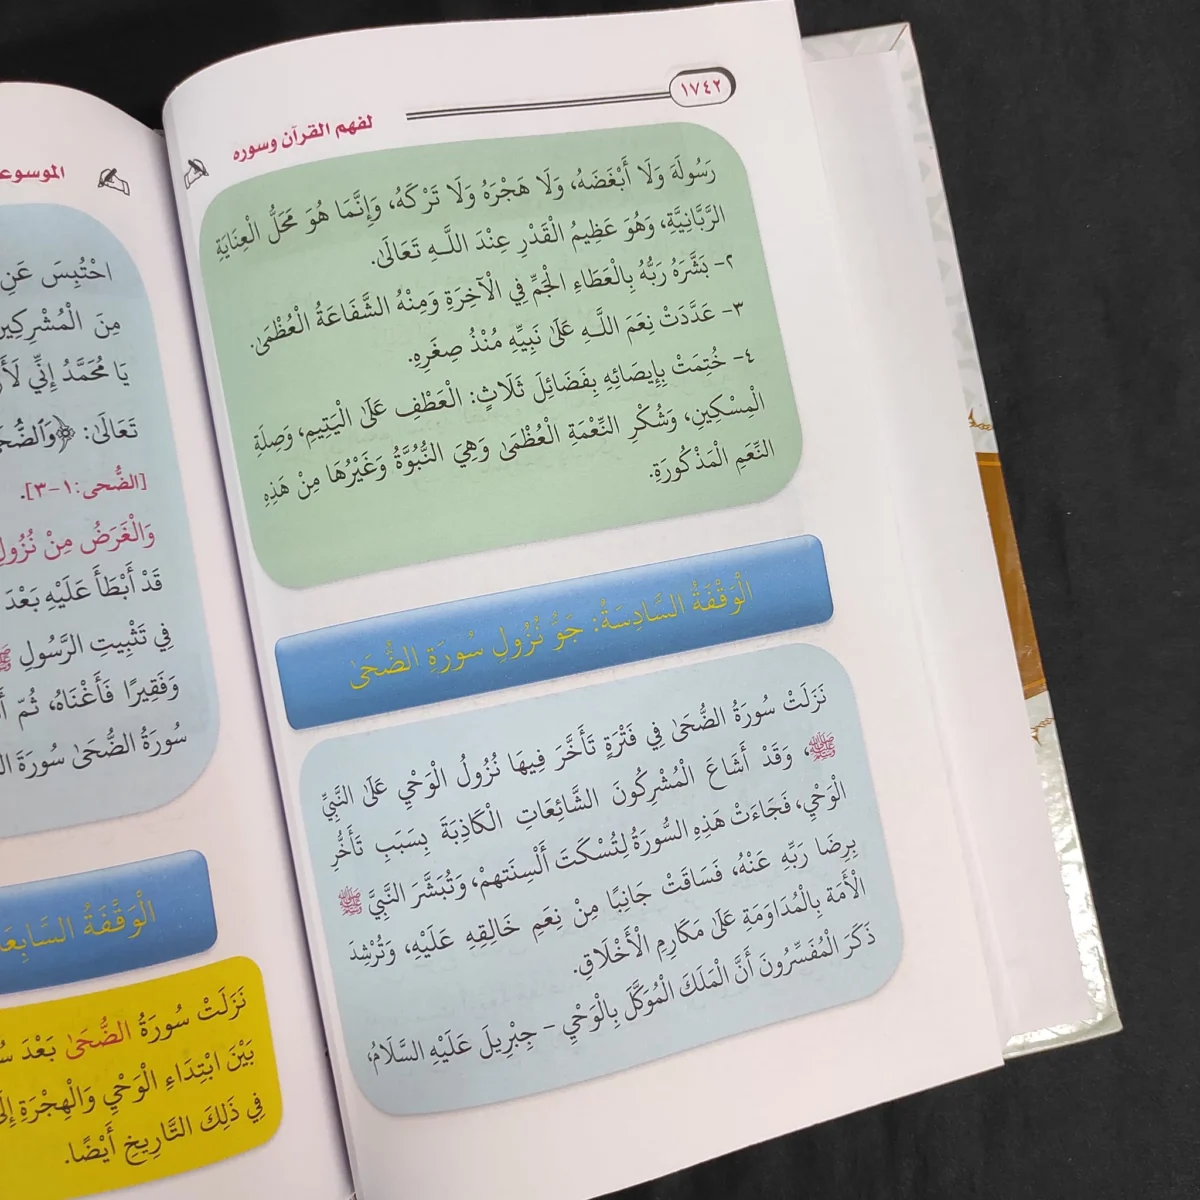 ١٧٤٢
لفهم القرآن وسوره
رَسُولَهُ وَلَا أَبْغَضَهُ، وَلَا هَجْرَهُ وَلَا تَرْكَهُ، وَإِنَّمَا هُوَ مَحَلُّ الْعِنَايَةِ
الرَّبَّانِيَّةِ، وَهُوَ عَظِيمُ الْقَدْرِ عِنْدَ اللَّهِ تَعَالَىٰ.
٢- بَشَّرَهُ رَبُّهُ بِالْعَطَاءِ الْجَمِّ فِي الْآخِرَةِ وَمِنْهُ الشَّفَاعَةُ الْعُظْمَىٰ.
٣- عَدَّدَتْ نِعَمَ اللَّهِ عَلَىٰ نَبِيِّهِ مُنْذُ صِغَرِهِ.
٤- خُتِمَتْ بِإِيصَائِهِ بِفَضَائِلَ ثَلَاثٍ: الْعَطْفِ عَلَىٰ الْيَتِيمِ، وَصِلَةِ
الْمِسْكِينِ، وَشُكْرِ النِّعْمَةِ الْعُظْمَىٰ وَهِيَ النُّبُوَّةُ وَغَيْرُهَا مِنْ هَذِهِ
النِّعَمِ الْمَذْكُورَةِ.
الْوَقْفَةُ السَّادِسَةُ: جَوُّ نُزُولِ سُورَةِ الضُّحَىٰ
نَزَلَتْ سُورَةُ الضُّحَىٰ فِي فَتْرَةٍ تَأَخَّرَ فِيهَا نُزُولُ الْوَحْيِ عَلَىٰ النَّبِيِّ
ﷺ، وَقَدْ أَشَاعَ الْمُشْرِكُونَ الشَّائِعَاتِ الْكَاذِبَةَ بِسَبَبِ تَأَخُّرِ
الْوَحْيِ، فَجَاءَتْ هَذِهِ السُّورَةُ لِتُسْكِتَ أَلْسِنَتهمْ، وَتُبَشِّرَ النَّبِيَّ ﷺ
بِرِضَا رَبِّهِ عَنْهُ، فَسَاقَتْ جَانِبًا مِنْ نِعَمِ خَالِقِهِ عَلَيْهِ، وَتُرْشِدَ
الْأُمَّة بِالْمُدَاوَمَةِ عَلَىٰ مَكَارِمِ الْأَخْلَاقِ.
ذَكَرَ الْمُفَسِّرُونَ أَنَّ الْمَلَكَ الْمُوَكَّلَ بِالْوَحْيِ - جِبْرِيلَ عَلَيْهِ السَّلَامُ،
احْتُبِسَ عَنِ
مِنَ الْمُشْرِكِينَ
يَا مُحَمَّدُ إِنِّي
تَعَالَىٰ:
[الضُّحى:١-٣].
وَالْغَرَضُ مِنْ نُزُولِ
قَدْ أَبْطَأَ عَلَيْهِ بَعْدَ
فِي تَثْبِيتِ الرَّسُولِ ﷺ
وَفَقِيرًا فَأَغْنَاهُ، ثُمّ
سُورَةُ الضُّحَىٰ سُورَةَ
الْوَقْفَةُ
نَزَلَتْ سُورَةُ الضُّحَىٰ بَعْدَ
بَيْنَ ابْتِدَاءِ الْوَحْيِ وَالْهِجْرَةِ
فِي ذَلِكَ التَّارِيخِ أَيْضًا.